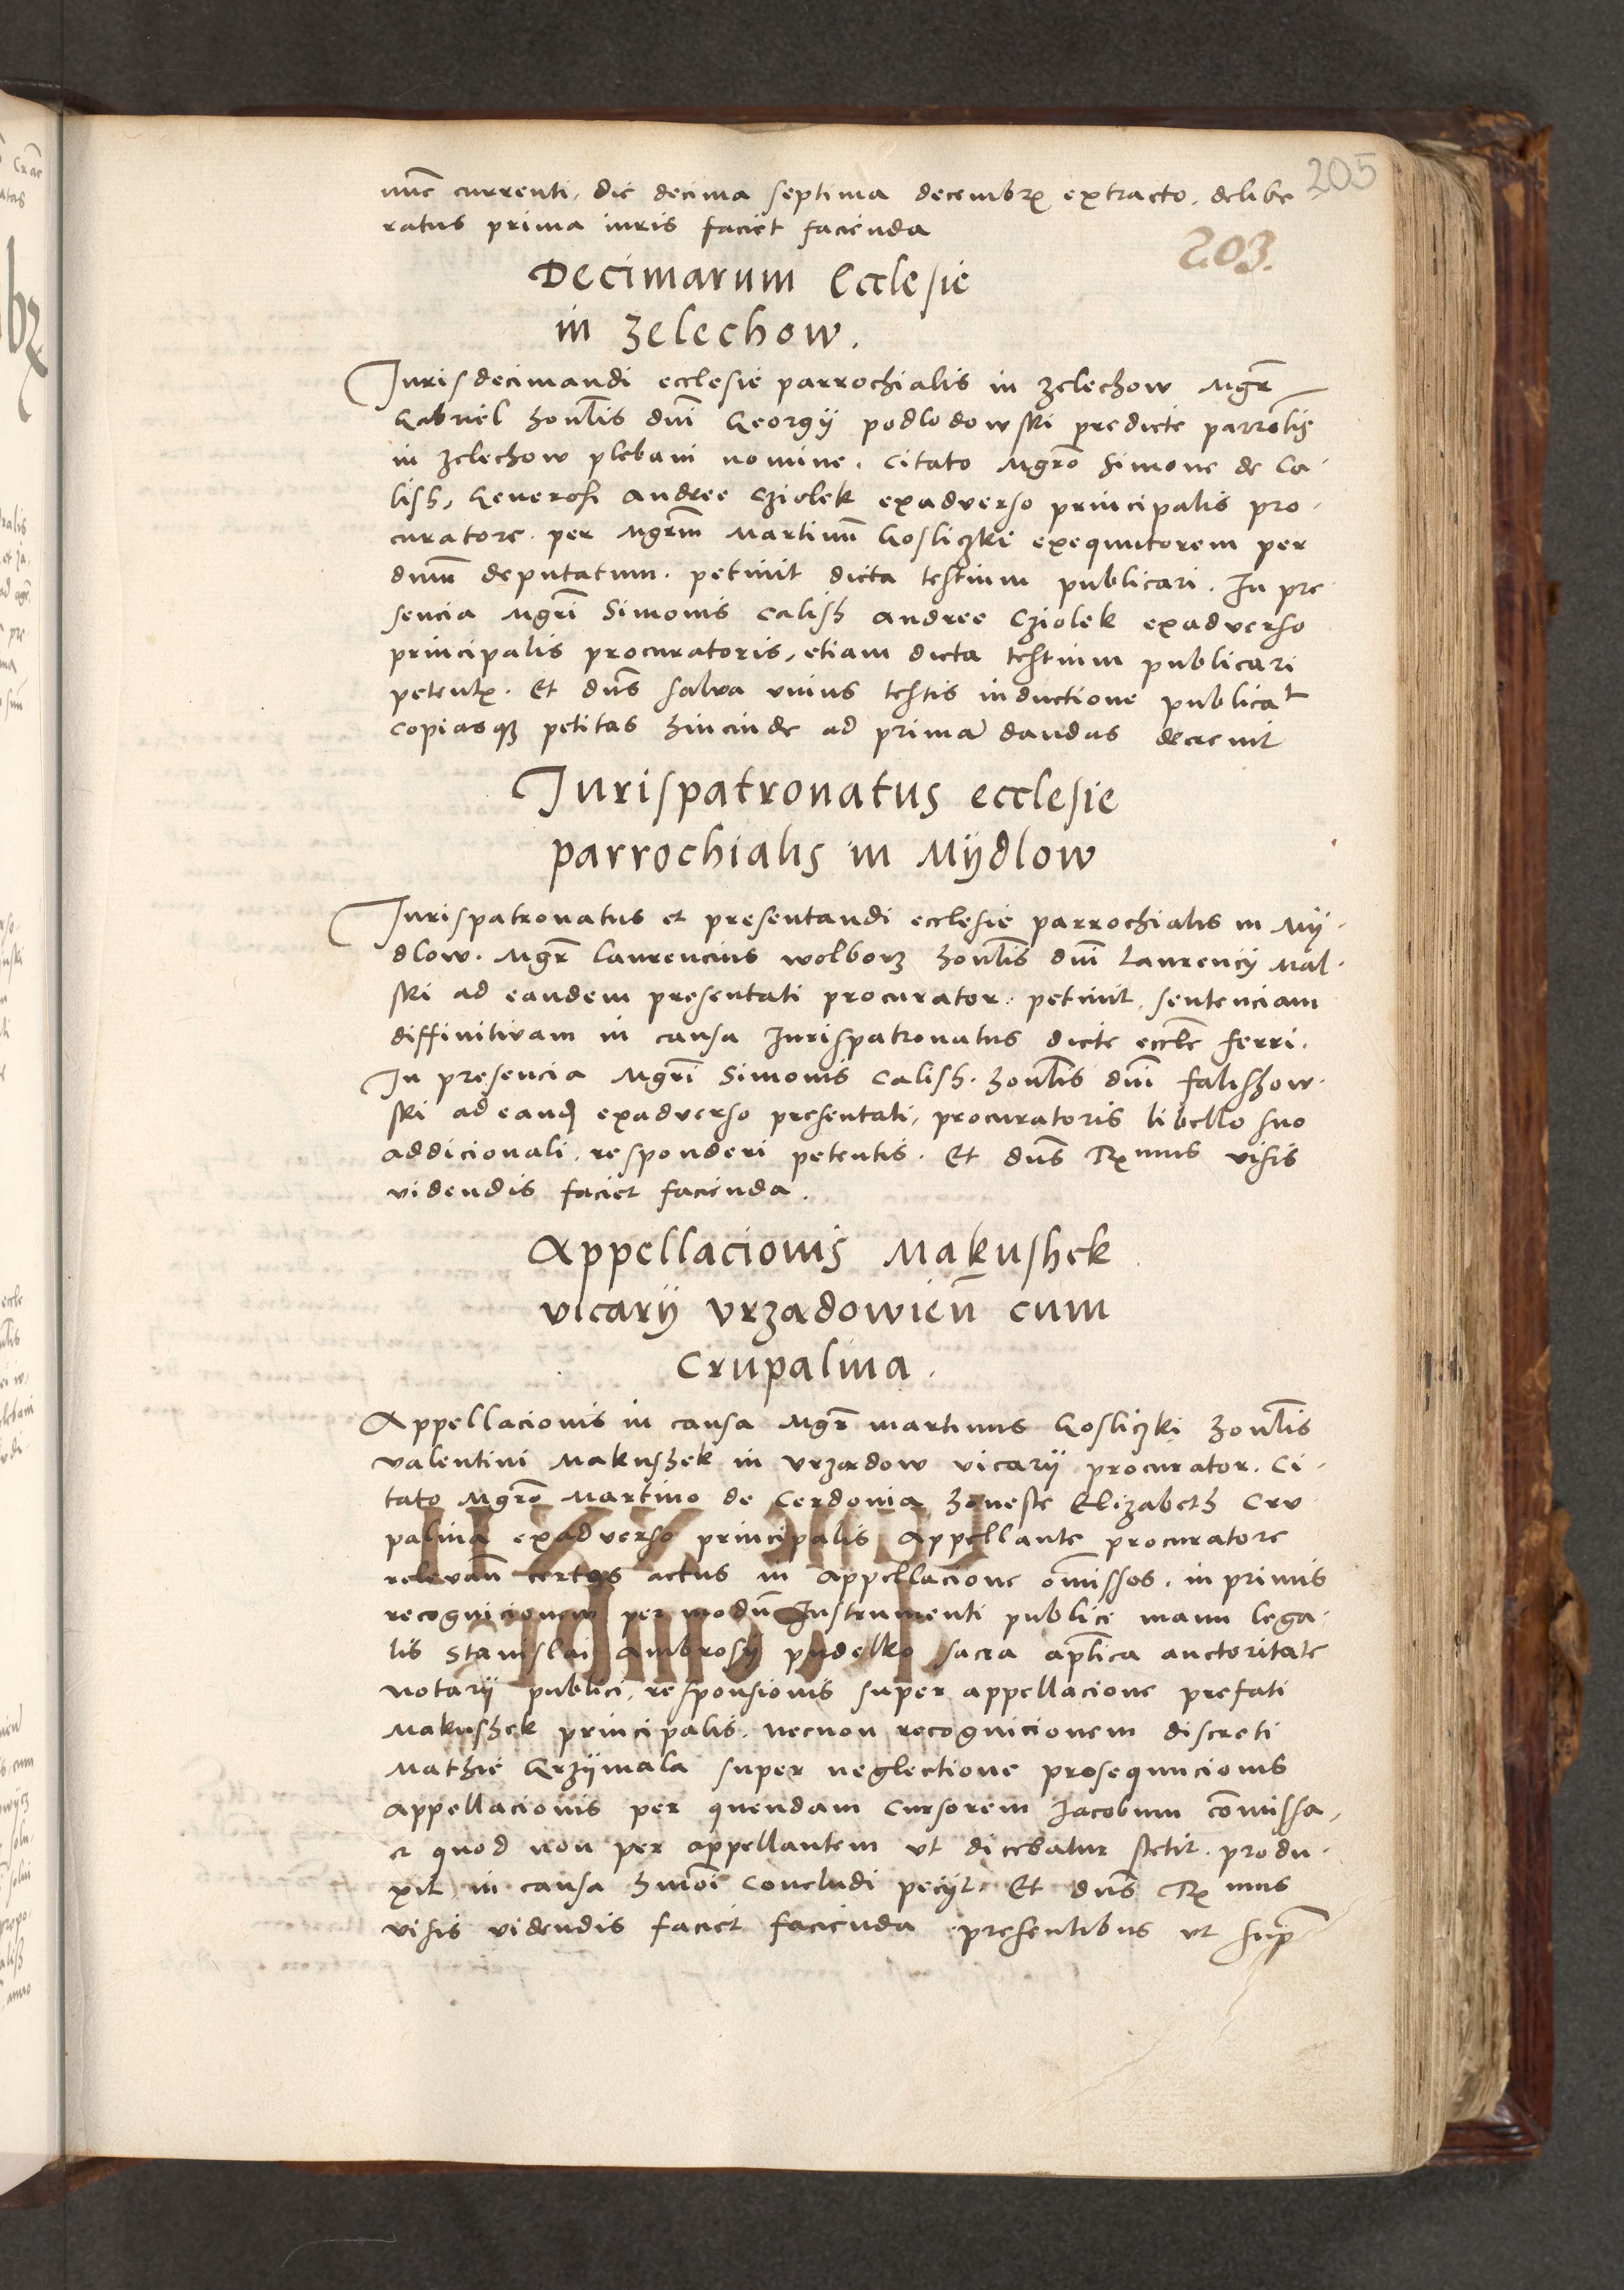 205
nunc currenti, die decima septima decembrꝭ extracto, delibe
ratus prima iuris faciet facienda
203.
Decimarum Ecclesie
in Zelechow.
Jurisdecimandi ecclesie parrochialis in Zelechow Mgr̄
Gabriel honl̄is dnī Georgÿ podlodowski predicte parrol̄is
in zelechow plebani nomine. Citato Mgrō Simone de Ca-
lish, Generosi Andree Cziolek exadverso principalis pro-
curatore. per Mgrm̄ Martinū Gosliczki exequutorem per
dnm̄ deputatum. petivit dicta testium publicari. In pre
sencia Mgrī Simonis Calish Andree Cziolek exadverso
principalis procuratoris, etiam dicta testium publicari
petentꝭ. Et dn̄s salva unius testis inductione publicat
copiasqꝫ petitas hincinde ad primā dandas decrevit
Jurispatronatus ecclesie
parrochialis in Mÿdlow
Jurispatronatus et presentandi ecclesie parrochialis in Mÿ-
dlow. Mgr̄ Laurencius wolborz honl̄is dnī Laurencÿ Mal-
ski ad eandem presentati procurator. petivit, sentenciam
diffinitivam in causa Jurispatronatus dicte eccl̄e ferri.
In presencia Mgrī Simonis Calish. honl̄is dnī falishow-
ski ad eand̄ exadverso presentati, procuratoris libello suo
addicionali, responderi petentis. Et dn̄s Rꝭmus visis
videndis faciet facienda.
Appellacionis Makushek
vicarÿ vrzadowien̄ cum
Crupalina.
Appellacionis in causa Mgr̄ martinus Gosliczki honl̄is
valentini Makushek in vrzadow vicarÿ procurator. Ci-
tato Mgrō Martino de Cerdonia honeste Elizabeth Cru
palina exadverso principalis Appellante procuratore
relevan̄ certos actus in Appellacione om̄issos. in primis
recognicionem per modū Instrumenti publice manu lega-
lis Stanislai Ambrosÿ pudelko sacra apl̄ica auctoritate
notarÿ publici, responsionis super appellacione prefati
Makushek principalis. necnon recognicionem discreti
Mathie Grzÿmala super neglectione prosequucionis
appellacionis per quendam Cursorem Jacobum com̄issa,
et quod non per appellantem ut dicebatur stetit. produ-
xit, in causa hmōi Concludi pecÿt. Et dn̄s Rꝭmus
visis videndis faciet facienda presentibus ut sup̄